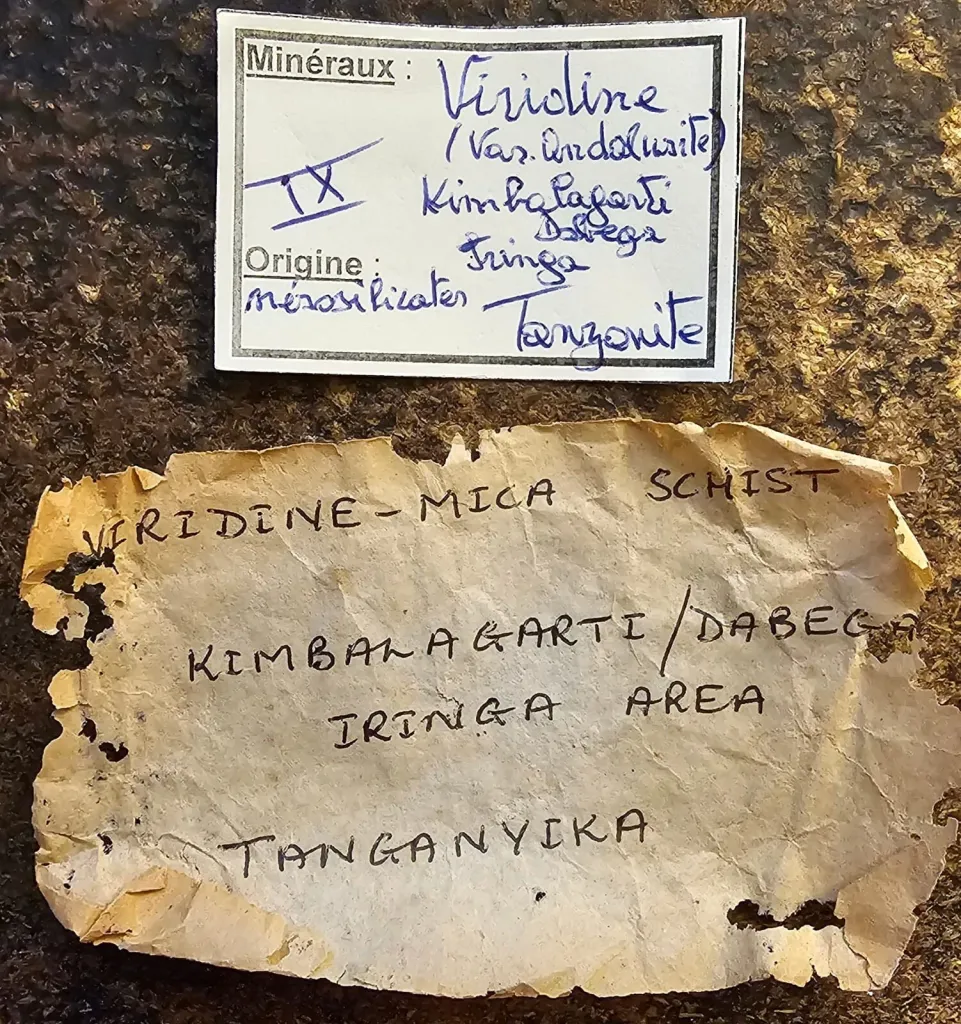 Minéraux :
Viridine
(Var. Andalusite)
IX
Kimbalagarti
Dabega
Iringa
Origine :
nésosilicates
Tanzanite
VIRIDINE - MICA SCHIST
KIMBALAGARTI / DABEGA
IRINGA AREA
TANGANYIKA